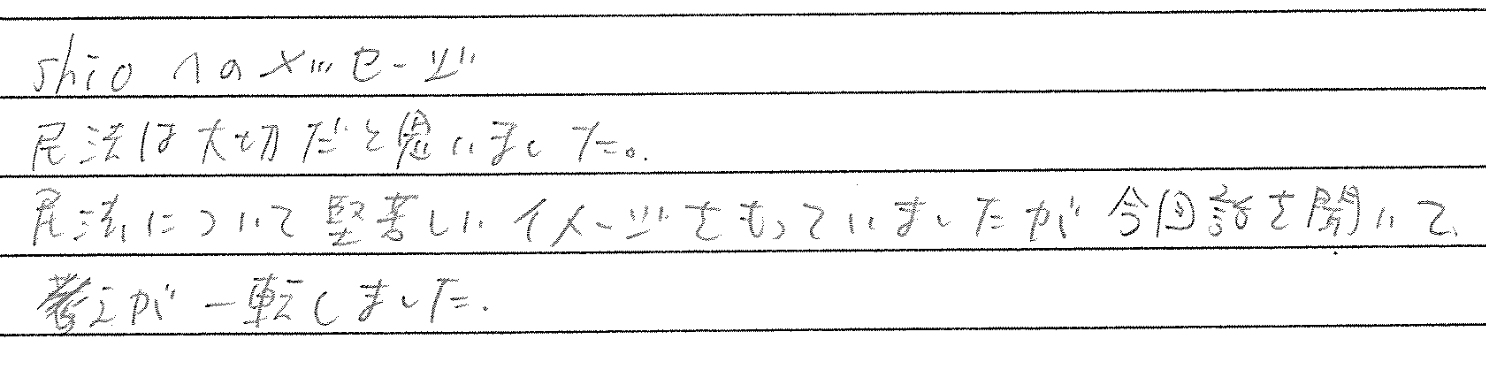 shioへのメッセージ
民法は大切だと思いました。
民法について堅苦しいイメージをもっていましたが今回話を聞いて、
考えが一転しました。